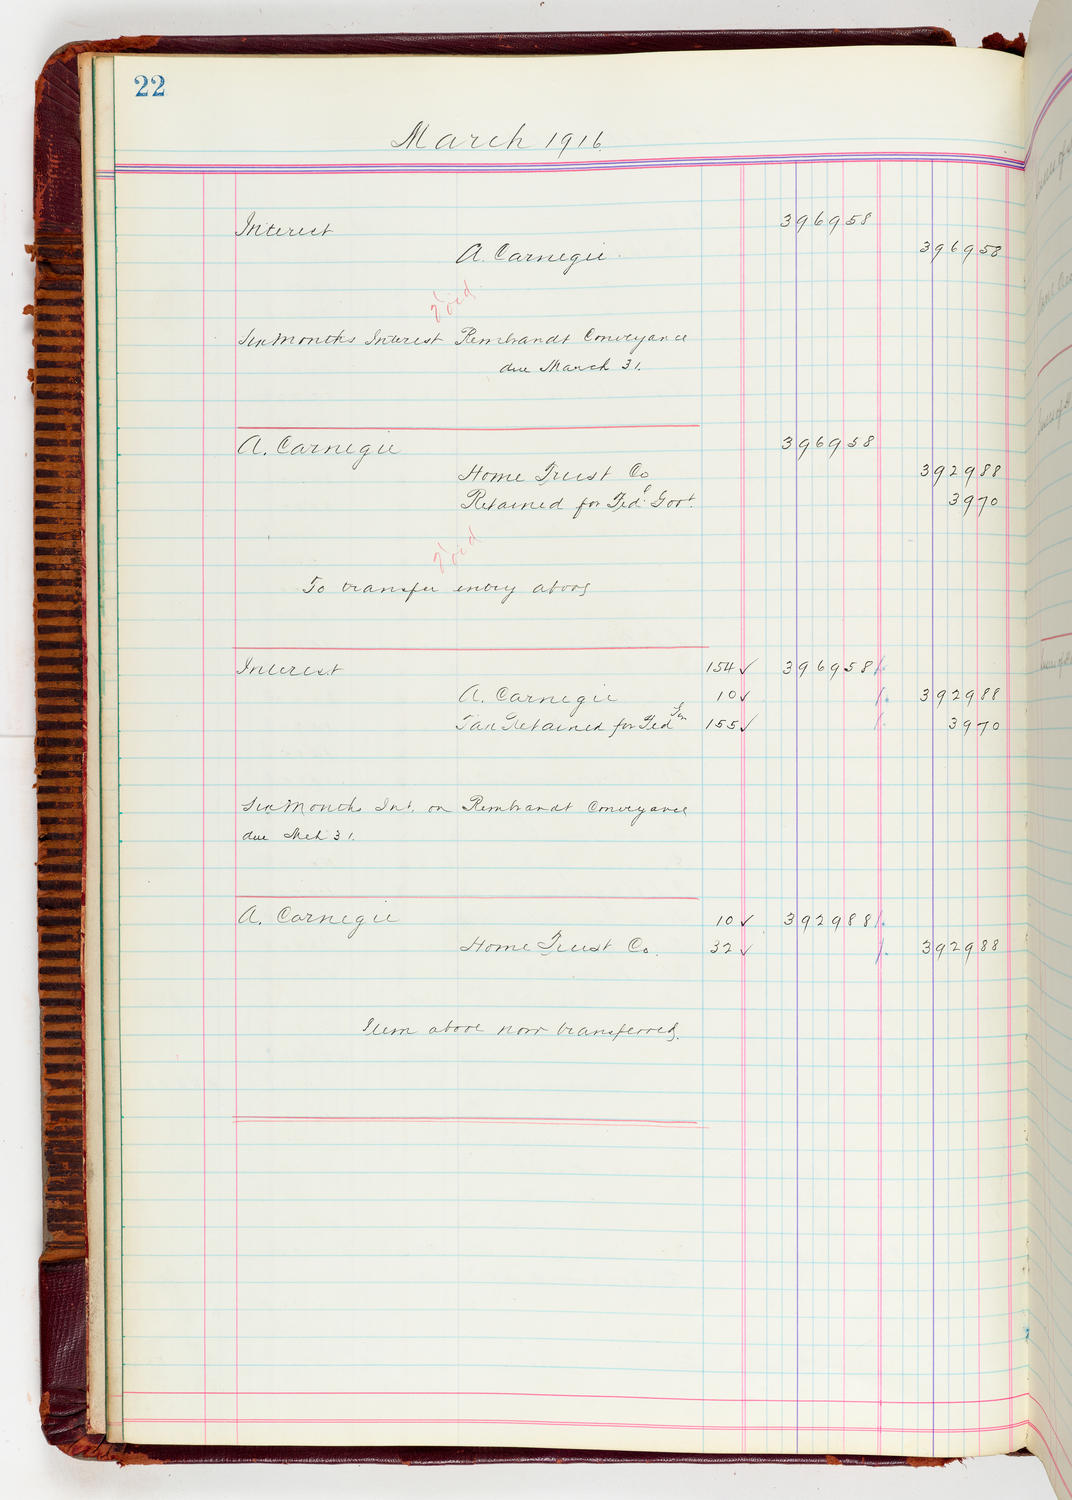 22
March 1916
Interest 396958
A. Carnegie 396958
Void
Six Months Interest Rembrandt Conveyance
due March 31.
A. Carnegie 396958
Home Trust Co 392988
Retained for Fed'l Govt. 3970
Void
To transfer entry above
Interest 154 ✓ 396958
A. Carnegie 10 ✓ 392988
Tax Retained for Fed Gov 155 ✓ 3970
Six Month Int. on Rembrandt Conveyance
due Mch 31.
A. Carnegie 10 ✓ 392988
Home Trust Co. 32 ✓ 392988
Item above now transferred.